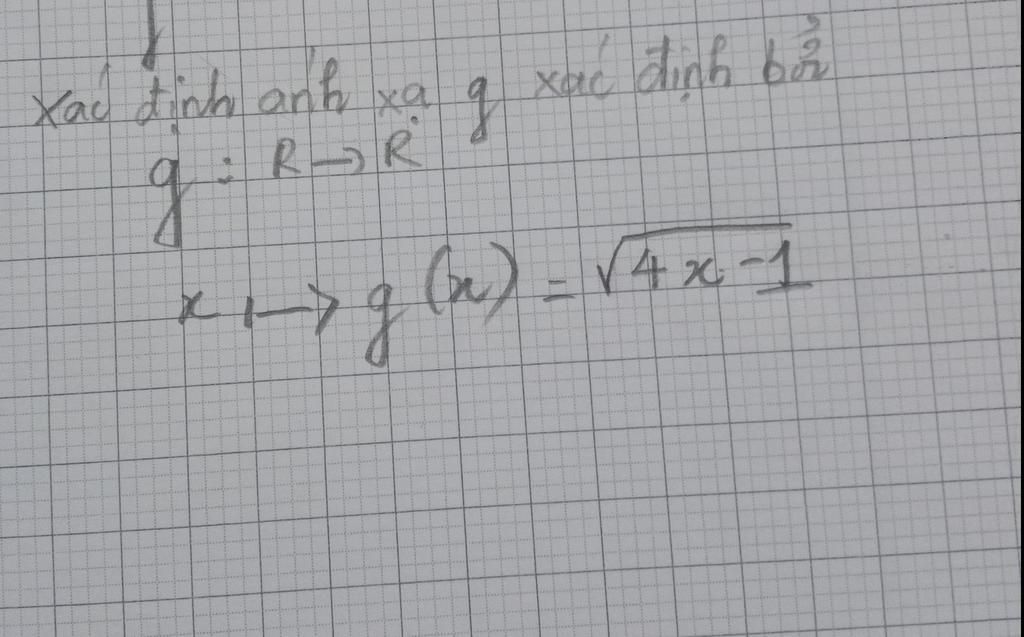 Xác định ánh xạ g xác định bởi
g : R → R
x ↦ g(x) = √(4x - 1)